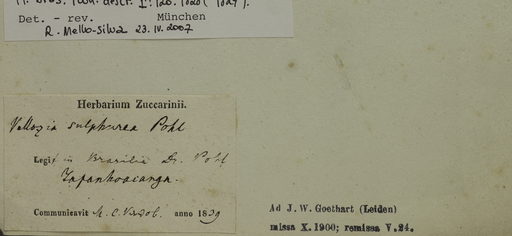 Pl. bras. Icon. descr. I: 120. 1826 (1827).
Det. - rev. München
R. Mello-Silva 23.IV.2007
Herbarium Zuccarinii.
Vellozia sulphurea Pohl
Legit in Brasilia Dr. Pohl
Tapanhoacanga.
Communicavit M. C. Vindob. anno 1839
Ad J. W. Goethart (Leiden)
missa X. 1900; remissa V.24.